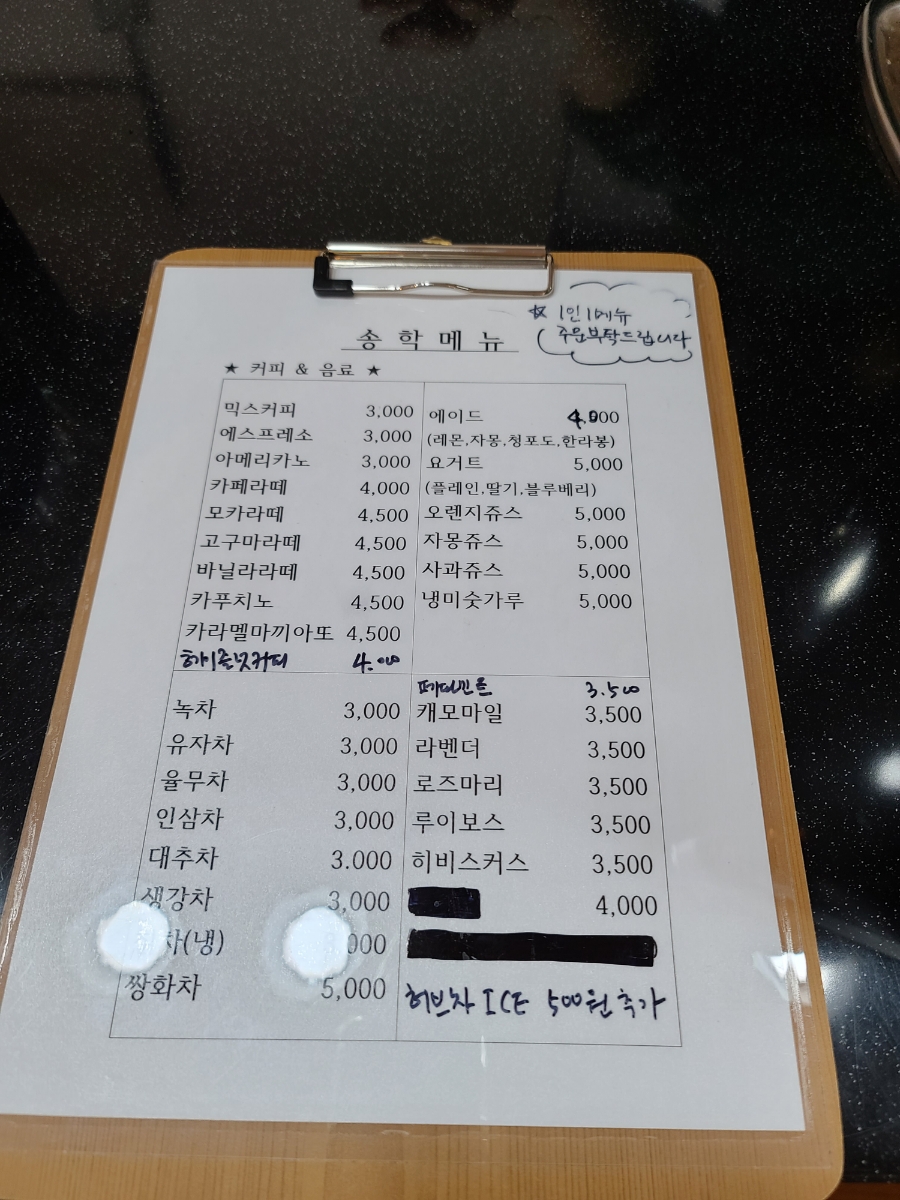 ☆ 1인 1메뉴
주문부탁드립니다
송 학 메 뉴
★ 커피 & 음료 ★
믹스커피 3,000
에스프레소 3,000
아메리카노 3,000
카페라떼 4,000
모카라떼 4,500
고구마라떼 4,500
바닐라라떼 4,500
카푸치노 4,500
카라멜마끼아또 4,500
헤이즐넛커피 4.000
에이드 4,000
(레몬,자몽,청포도,한라봉)
요거트 5,000
(플레인,딸기,블루베리)
오렌지쥬스 5,000
자몽쥬스 5,000
사과쥬스 5,000
냉미숫가루 5,000
녹차 3,000
유자차 3,000
율무차 3,000
인삼차 3,000
대추차 3.000
생강차 3,000
차(냉) 000
쌍화차 5,000
페퍼민트 3.500
캐모마일 3,500
라벤더 3,500
로즈마리 3,500
루이보스 3,500
히비스커스 3,500
4,000
허브차 ICE 500원 추가